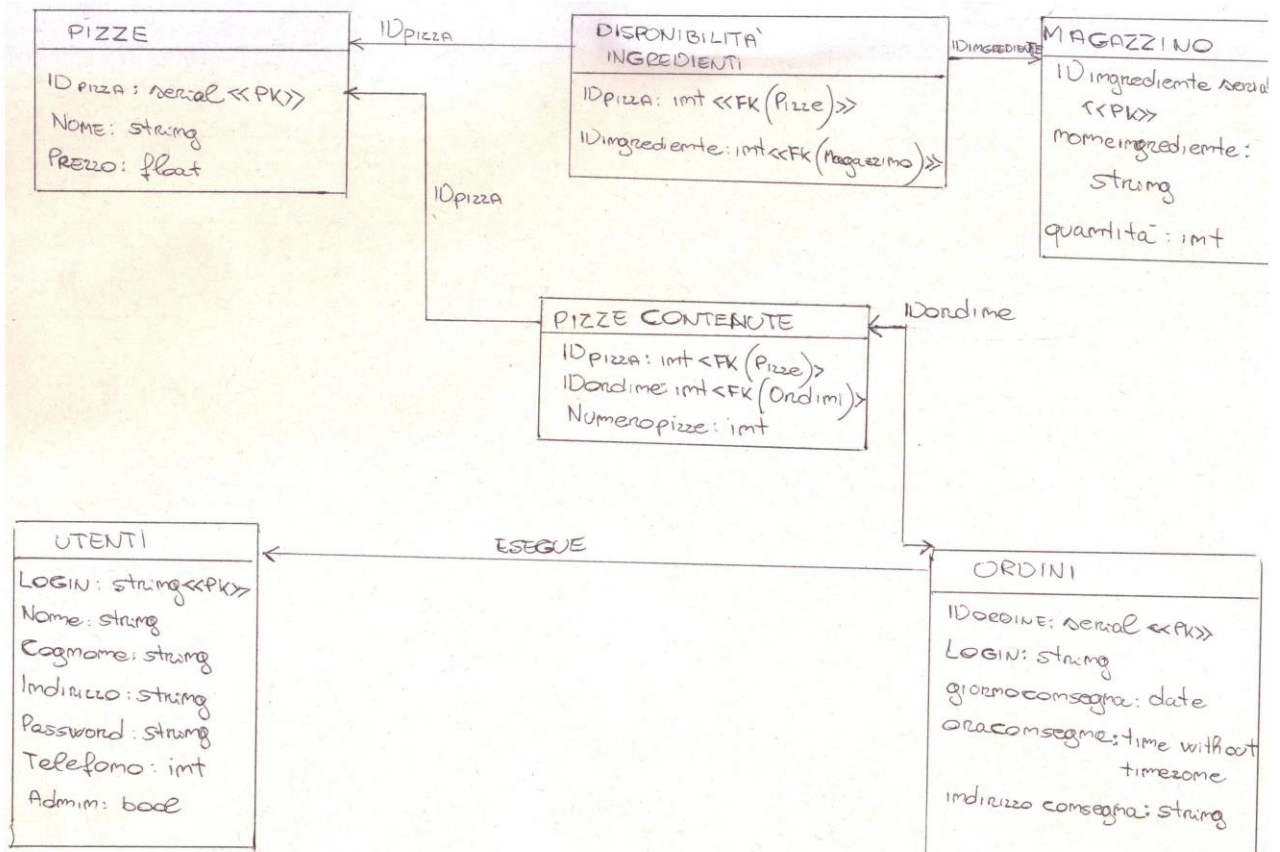 PIZZE
IDPIZZA: serial <<PK>>
NOME: string
PREZZO: float
IDPIZZA
DISPONIBILITÀ
INGREDIENTI
IDPIZZA: int <<FK(Pizze)>>
IDingrediente: int<<FK(Magazzino)>>
IDINGREDIENTE
MAGAZZINO
IDingrediente serial
<<PK>>
nomeingrediente:
string
quantità: int
IDPIZZA
PIZZE CONTENUTE
IDPIZZA: int <FK(Pizze)>
IDordine: int <FK(Ordini)>
Numeropizze: int
IDordine
UTENTI
LOGIN: string<<PK>>
Nome: string
Cognome: string
Indirizzo: string
Password: string
Telefono: int
Admin: bool
ESEGUE
ORDINI
IDORDINE: serial <<PK>>
LOGIN: string
giornoconsegna: date
oraconsegna: time without
timezone
indirizzo consegna: string